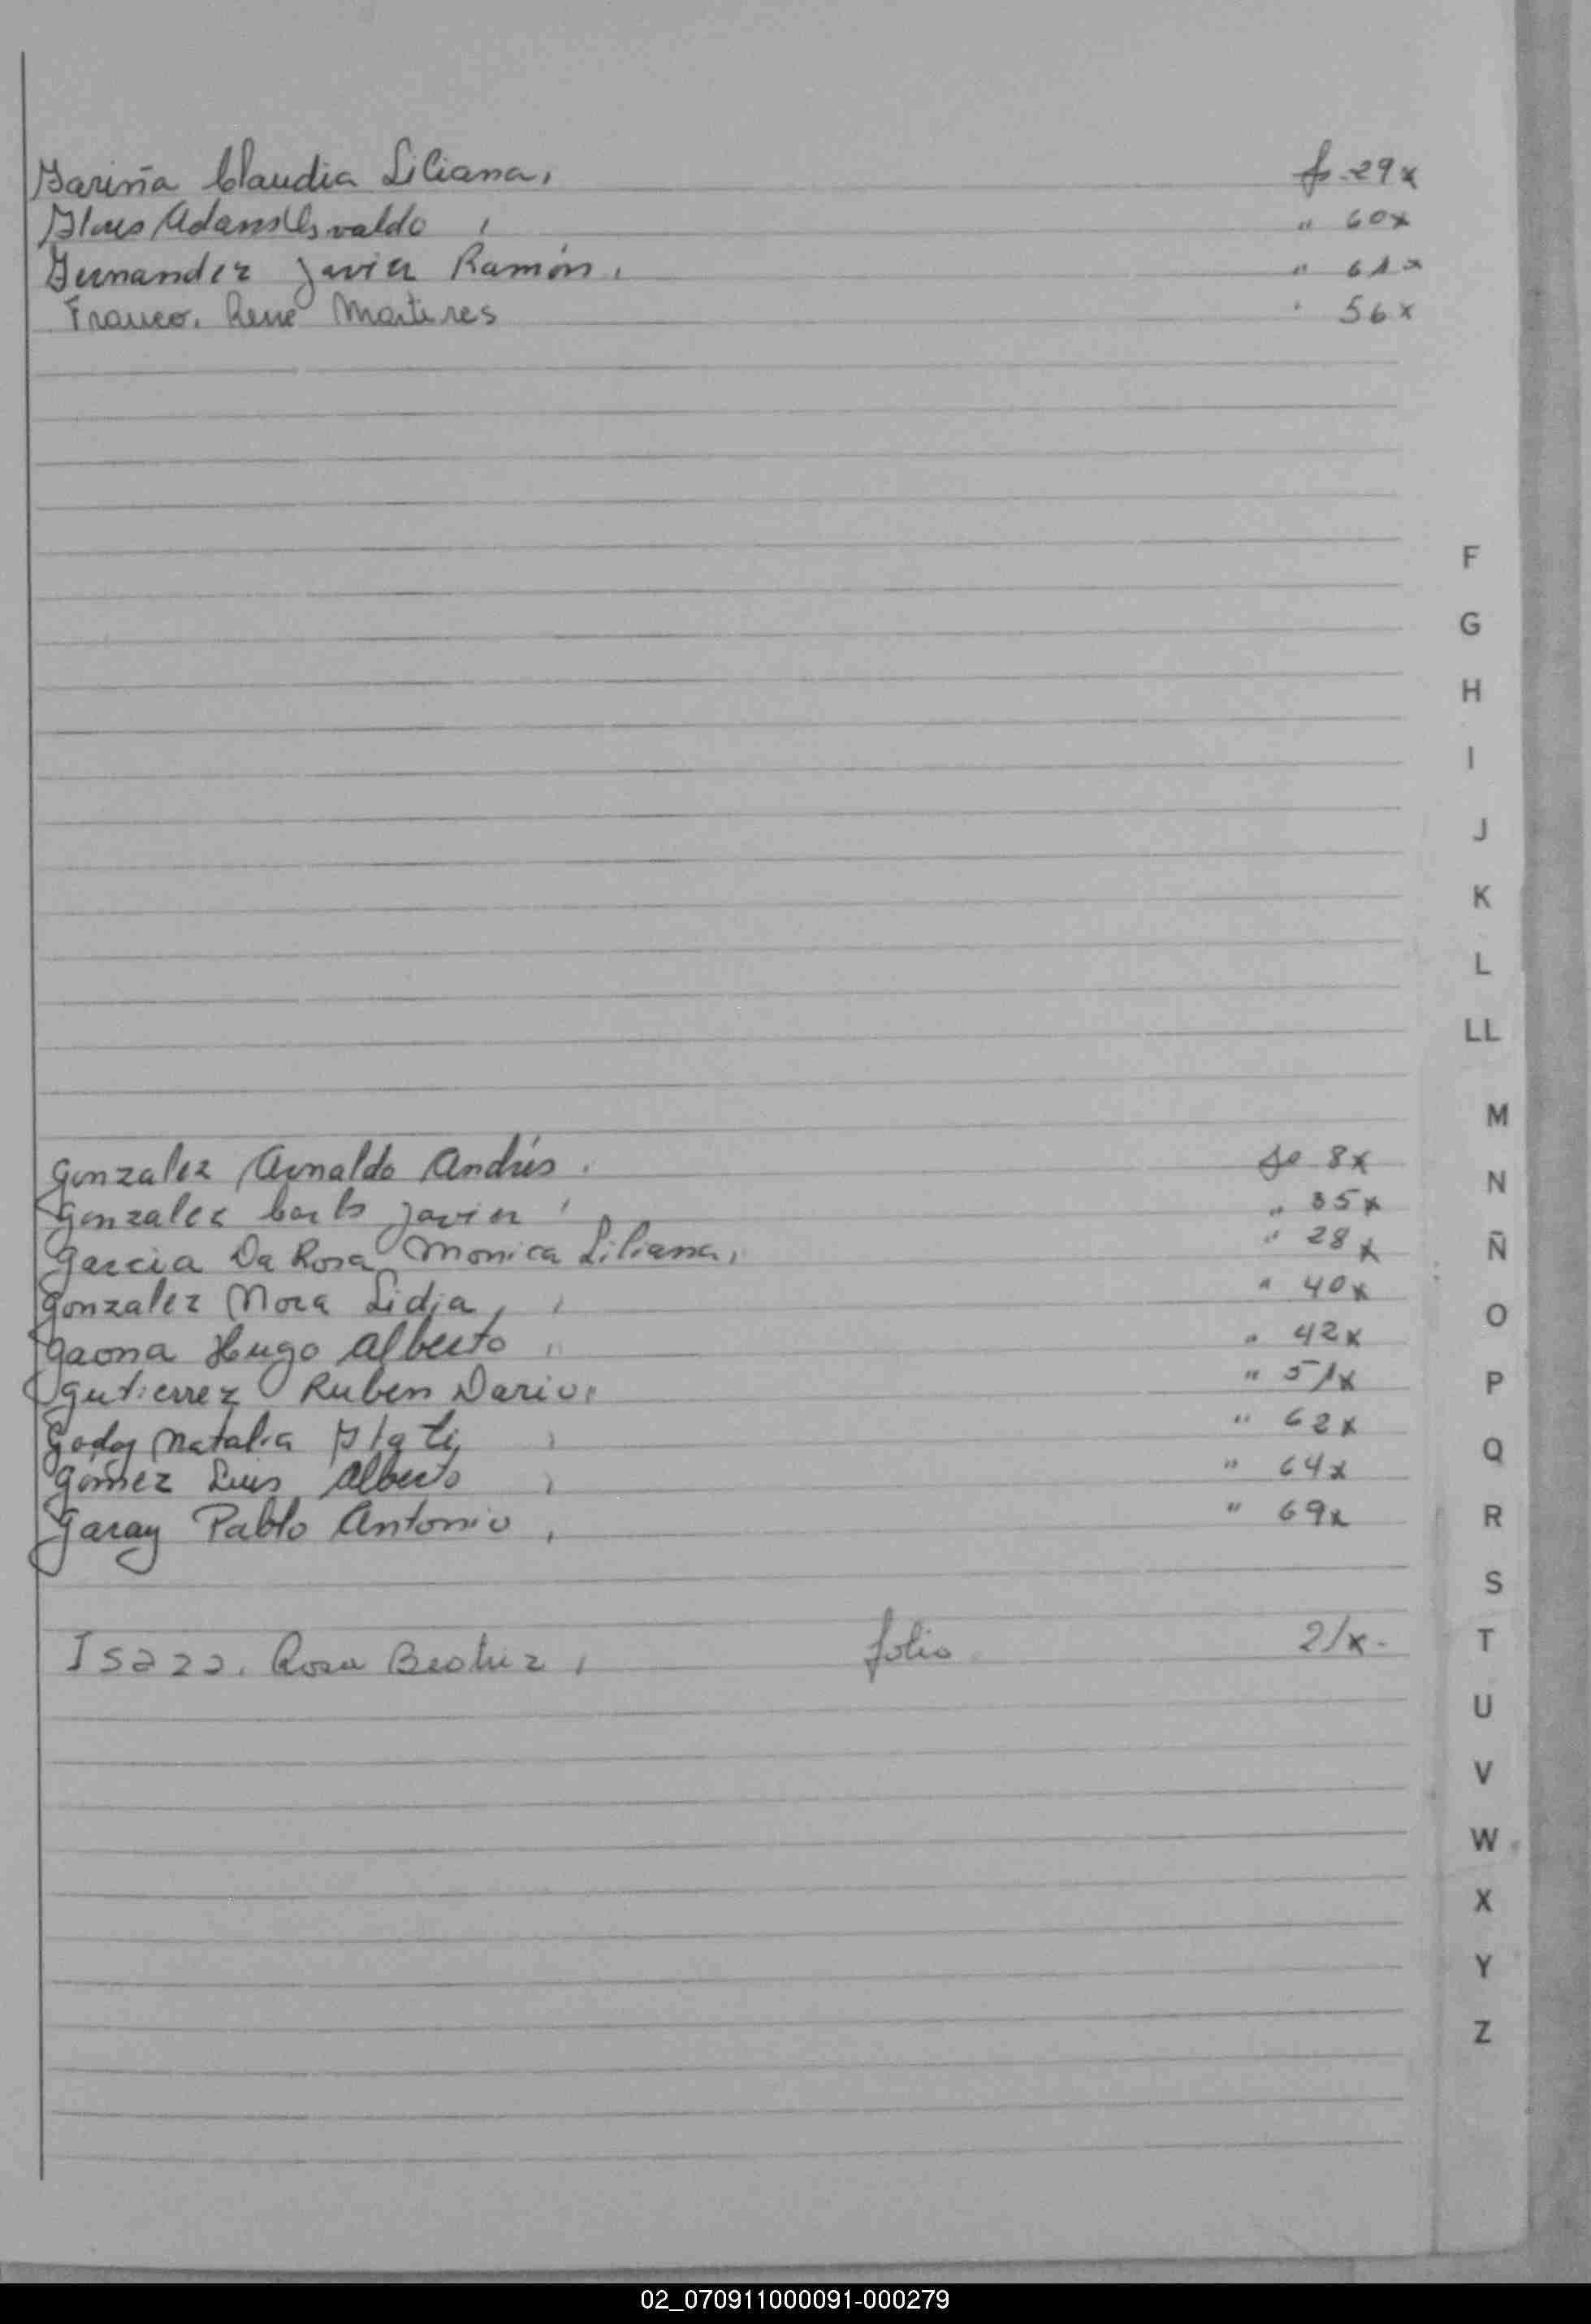 Fariña Claudia Liliana, fo 29x
Flores Adans Osvaldo , " 60x
Fernandez Javier Ramón, " 61x
Franco. Rene Martires " 56x
F
G
H
I
J
K
L
LL
M
Gonzalez Arnaldo Andrés. fo 8x
N
Gonzalez Carlos Javier , " 35x
Garcia Da Rosa Monica Liliana, " 28x
Ñ
Gonzalez Nora Lidia, , " 40x
O
Gaona Hugo Alberto " 42x
Gutierrez Ruben Dario, " 51x
P
Godoy Natalia , " 62x
Q
Gómez Luis Alberto , " 64x
Garay Pablo Antonio , " 69x
R
S
Isazz. Rosa Beatriz , folio 21x.
T
U
V
W
X
Y
Z
02_070911000091-000279